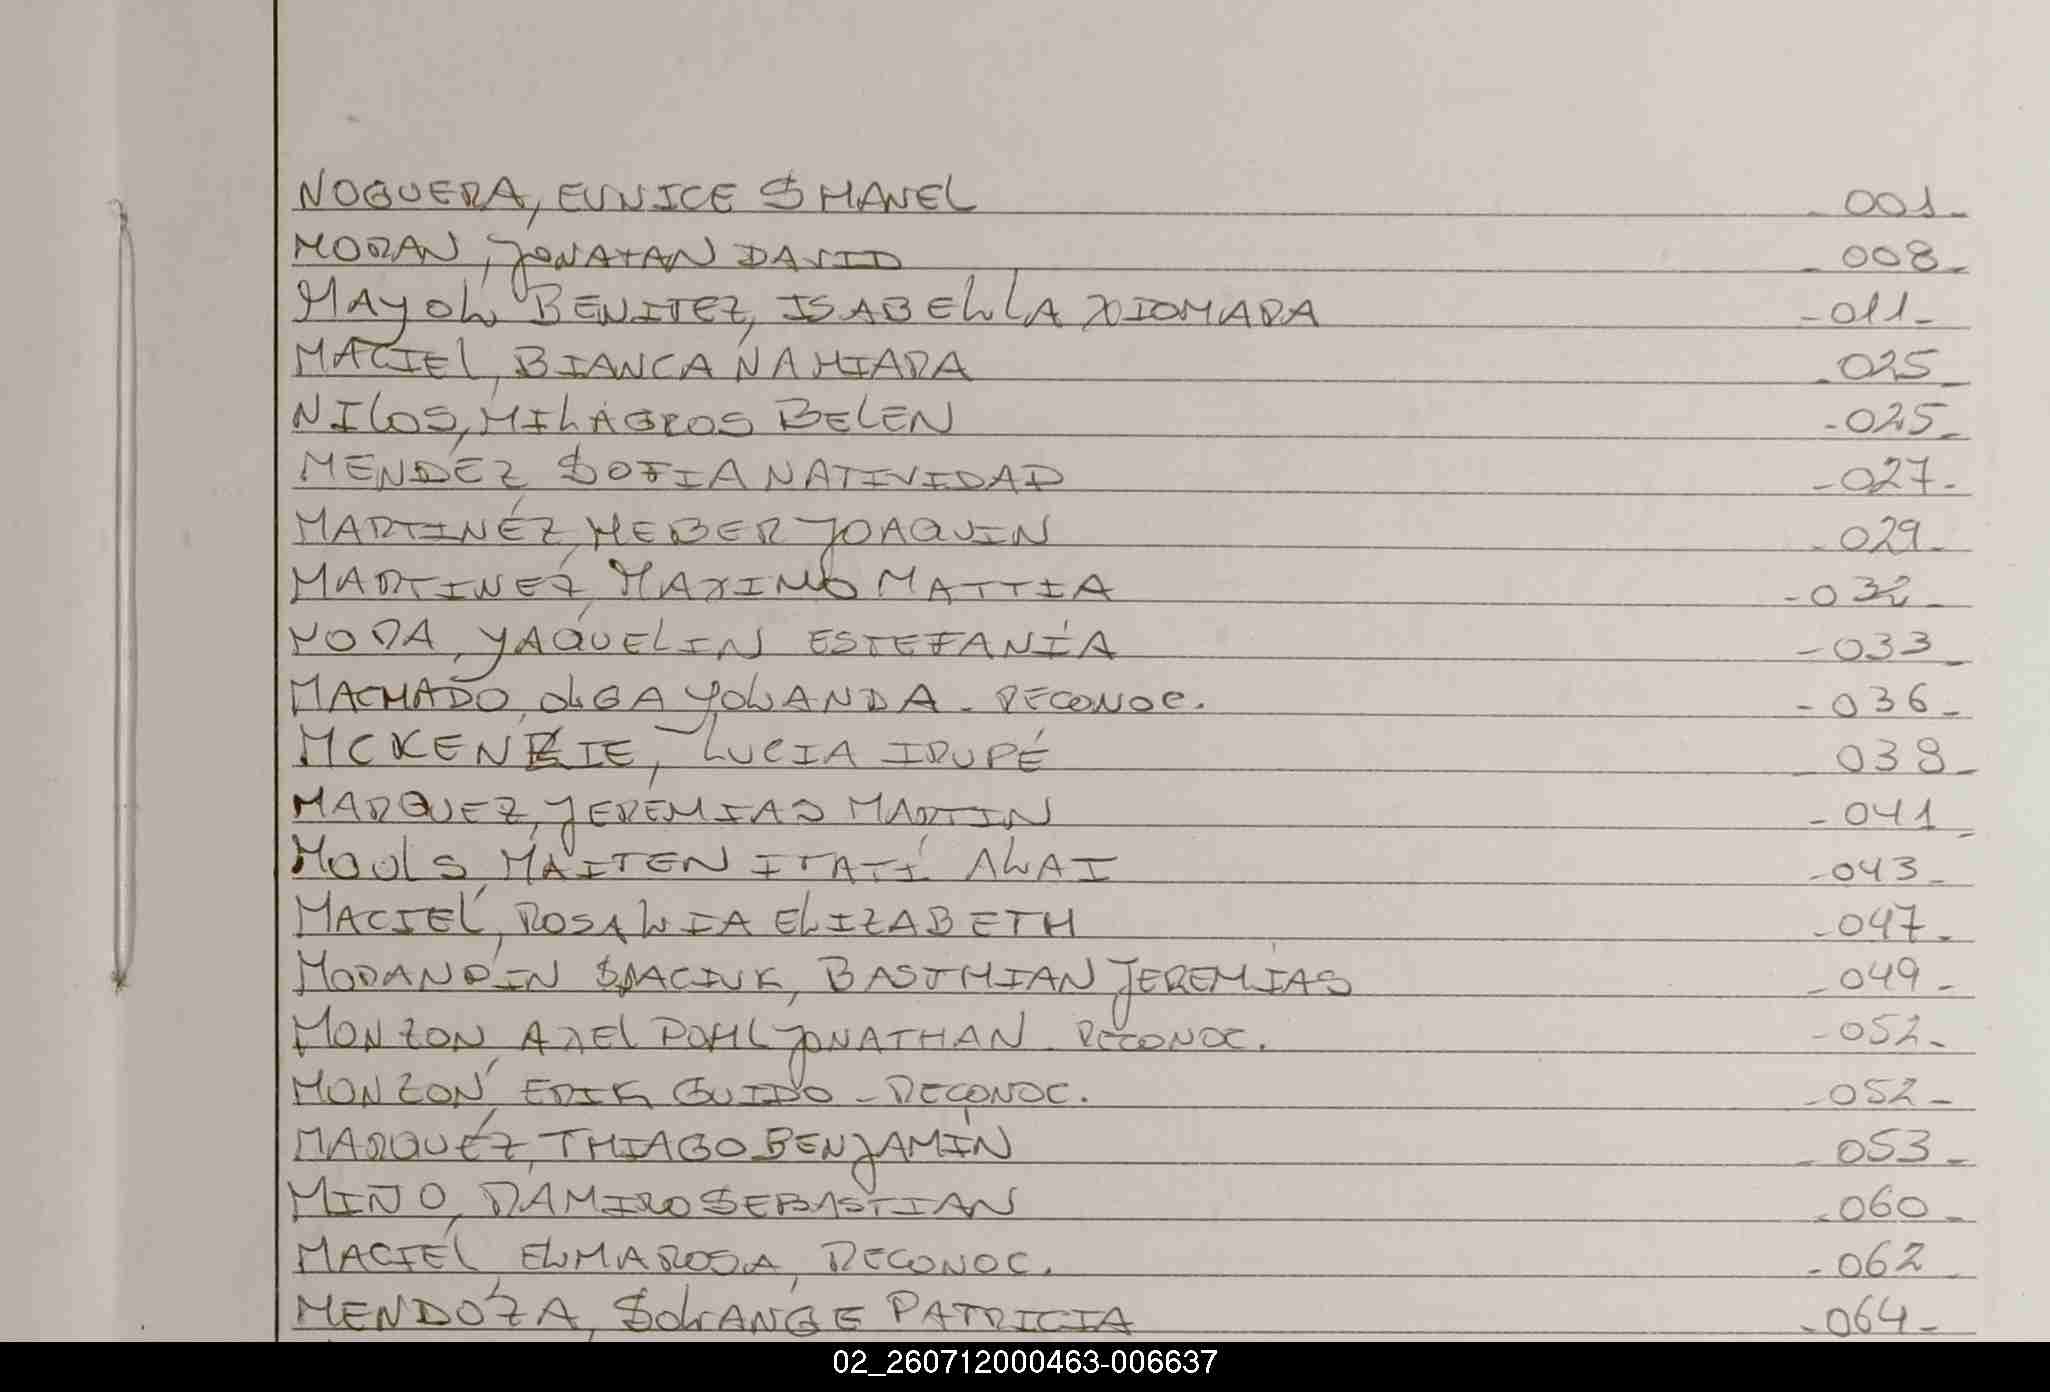 NOGUERA, EUNICE SHANEL 001
MORAN, JONATAN DAVID 008
MAYOL BENITEZ, ISABELLA XIOMARA 011
MACIEL, BIANCA NAHIARA 025
NILOS, MILAGROS BELEN 025
MENDEZ SOFIA NATIVIDAD 027
MARTINEZ, HEBER JOAQUIN 029
MARTINEZ, MAXIMO MATTIA 032
MORA, YAQUELIN ESTEFANÍA 033
MACHADO, OLGA YOLANDA - RECONOC. 036
MCKENZIE, LUCIA IRUPÉ 038
MARQUEZ, JEREMIAS MARTIN 041
MAITEN ITATÍ ALAI 043
MACIEL, ROSALIA ELIZABETH 047
MORANDIN SPACIUK, BASTHIAN JEREMÍAS 049
MONZON, AXEL POHL JONATHAN - RECONOC. 052
MONZON, ERIK GUIDO - RECONOC. 052
MARQUEZ, THIAGO BENJAMÍN 053
MINO, RAMIRO SEBASTIAN 060
MACIEL ELMA ROSA, RECONOC. 062
MENDOZA, SOLANGE PATRICIA 064
02_260712000463-006637